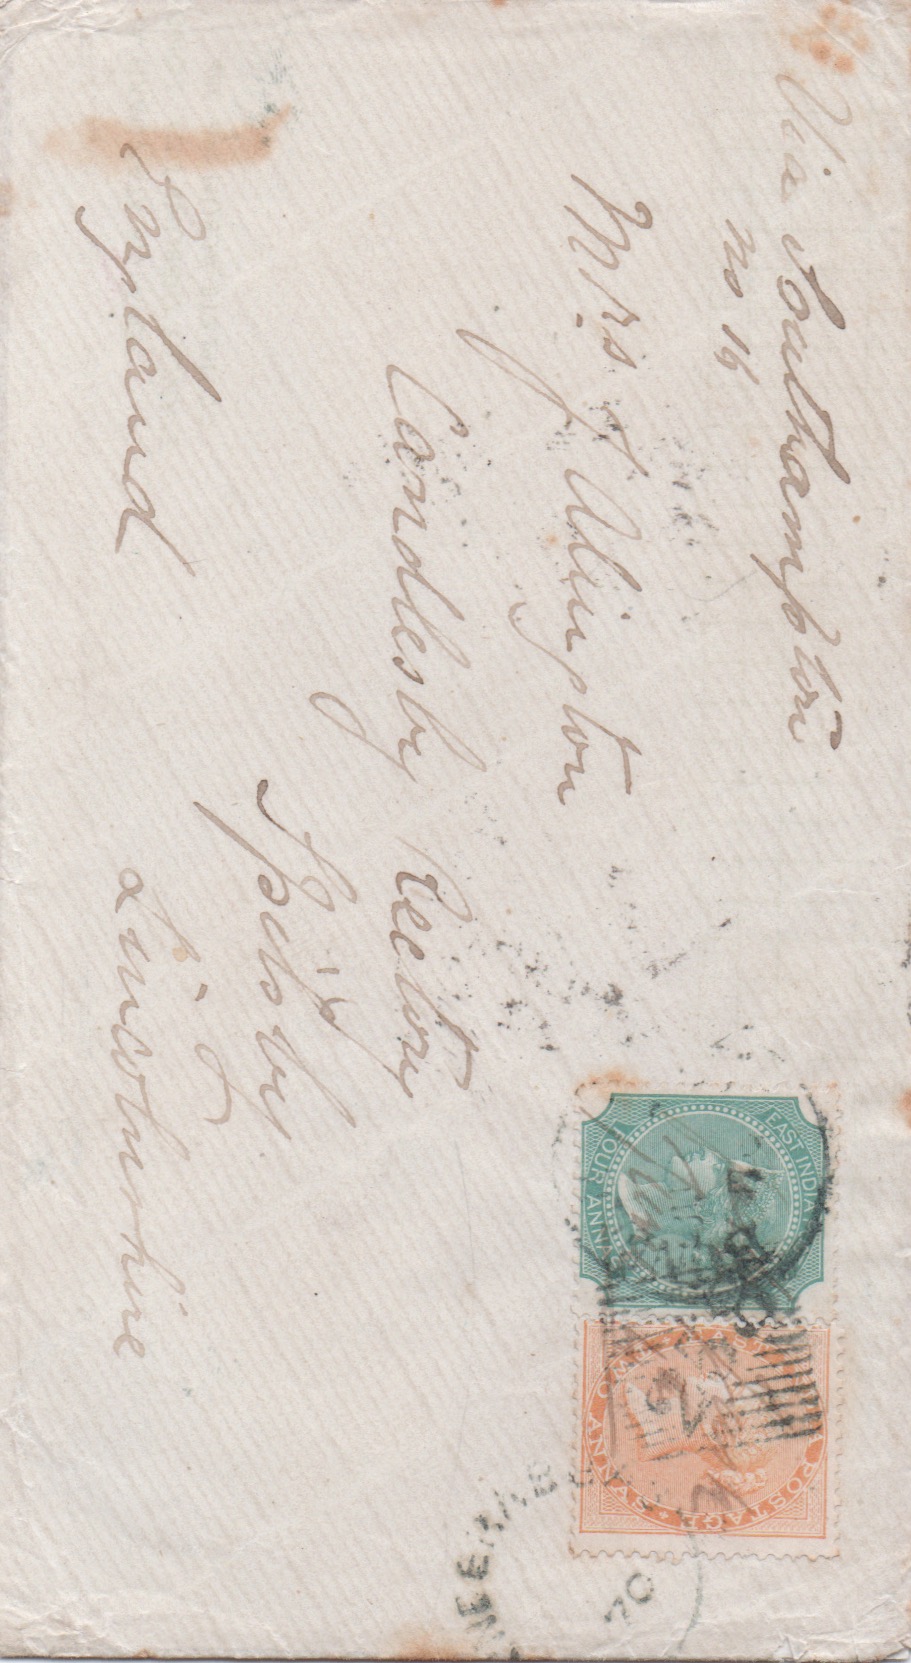 Via Southampton
No 16
Mrs J Alington
Candlesby Rectory
Spilsby
Lincolnshire
England
EAST INDIA
FOUR ANNAS
POSTAGE
TWO ANNAS
70